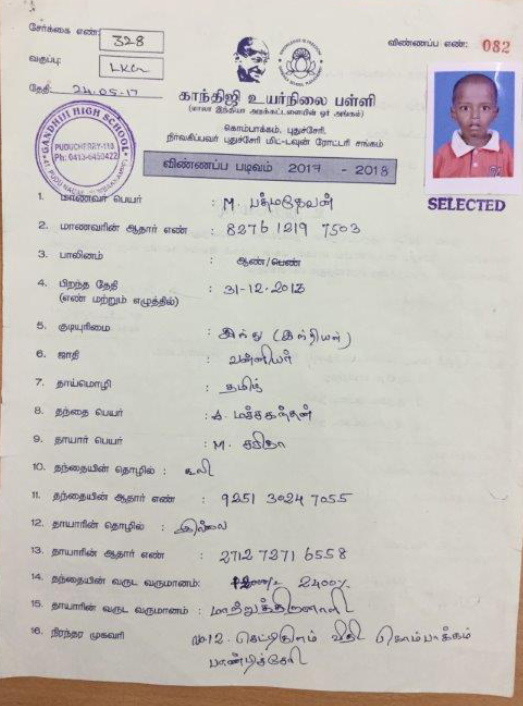 சேர்க்கை எண்: 328
விண்ணப்ப எண்: 082
வகுப்பு: LKG
தேதி: 24.05.17
காந்திஜி உயர்நிலை பள்ளி
கொம்பாக்கம், புதுச்சேரி.
நிர்வகிப்பவர் புதுச்சேரி மிட்-டவுன் ரோட்டரி சங்கம்
GANDHIJI HIGH SCHOOL
PUDUCHERRY-110
Ph: 0413-6450422
விண்ணப்ப படிவம் 2017 - 2018
SELECTED
1. மாணவர் பெயர் : M. பத்மதேவன்
2. மாணவரின் ஆதார் எண் : 8276 1219 7503
3. பாலினம் : ஆண்/பெண்
4. பிறந்த தேதி : 31-12-2013
(எண் மற்றும் எழுத்தில்)
5. குடியுரிமை : இந்து (இந்தியன்)
6. ஜாதி : வன்னியர்
7. தாய்மொழி : தமிழ்
8. தந்தை பெயர் :
9. தாயார் பெயர் : M. கவிதா
10. தந்தையின் தொழில் : கூலி
11. தந்தையின் ஆதார் எண் : 9251 3024 7055
12. தாயாரின் தொழில் : இல்லை
13. தாயாரின் ஆதார் எண் : 2712 7271 6558
14. தந்தையின் வருட வருமானம்: 2400/.
15. தாயாரின் வருட வருமானம் :
16. நிரந்தர முகவரி No:12. வீதி கொம்பாக்கம்
பாண்டிச்சேரி